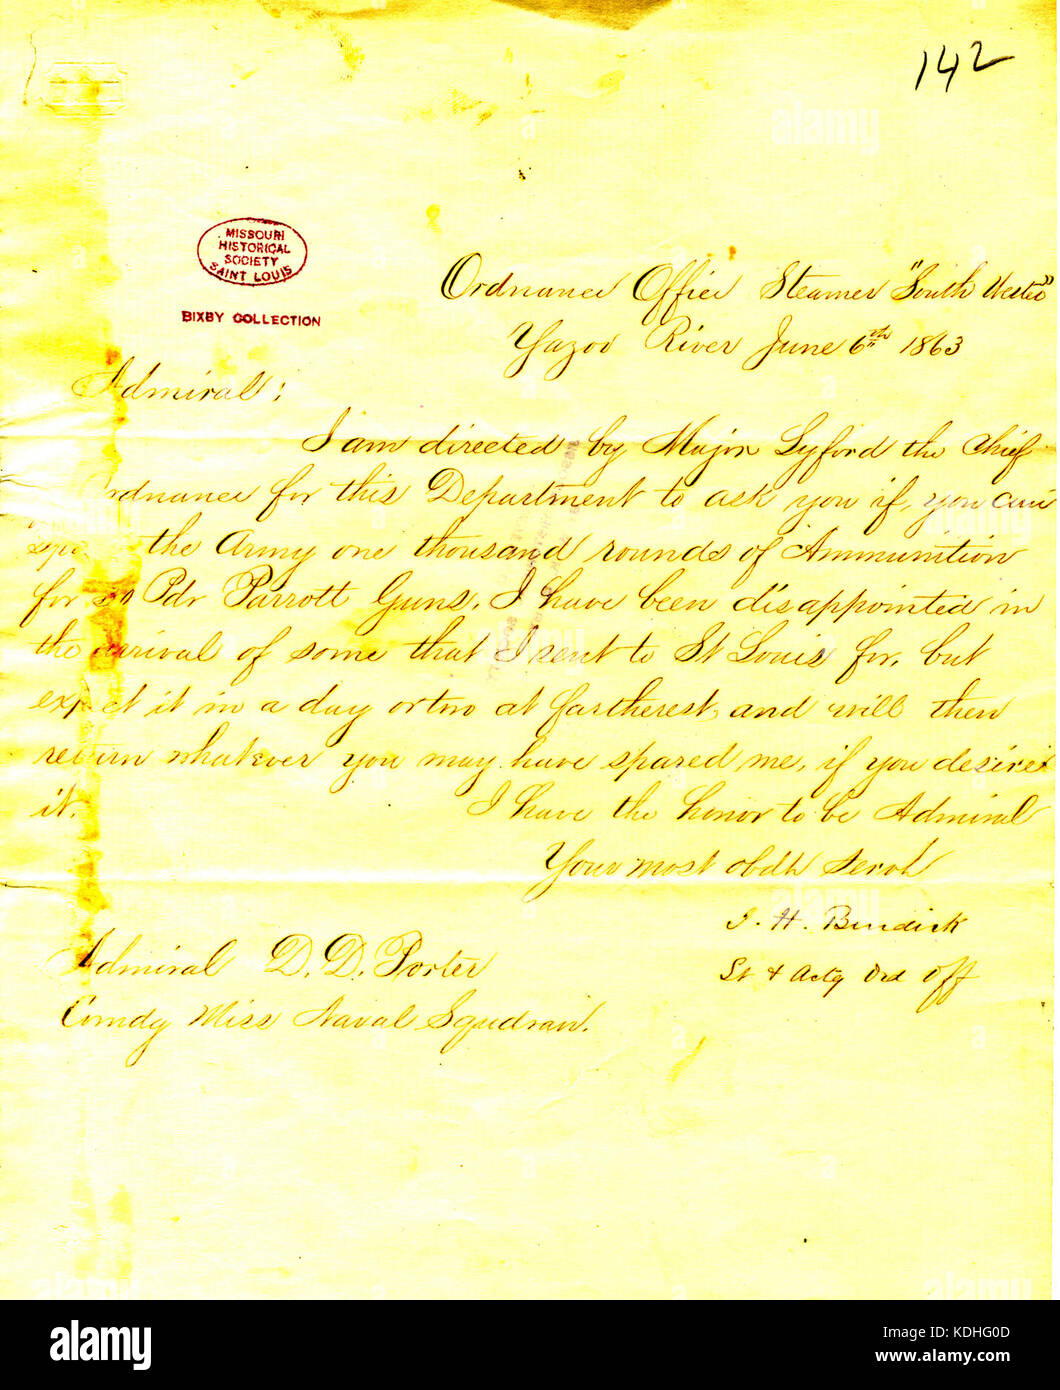 142
MISSOURI
HISTORICAL
SOCIETY
SAINT LOUIS
BIXBY COLLECTION
Ordnance Office Steamer "South Wester"
Yazoo River June 6th 1863
Admiral;
I am directed by Major Lyford the Chief
Ordnance for this Department to ask you if, you can
the Army one thousand rounds of Ammunition
for Pdr Parrott Guns. I have been disappointed in
the arrival of some that I sent to St Louis for, but
expect it in a day or two at fartherest, and will then
return whatever you may have spared me, if you desire
it. I have the honor to be Admiral
Your most obdt Servt
J. H. Burdick
Lt & Actg Ord Off
Admiral D. D. Porter
Comdg Miss Naval Squdran.
alamy
Image ID: KDHG0D
www.alamy.com